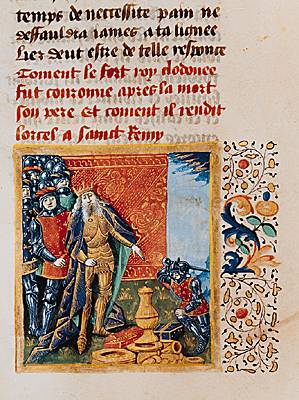 temps de necessite pain ne
deffauldra iames a ta lignee
Liez deut estre de telle responce
Coment le fort roy clodouee
fut couronne apres la mort
son pere Et coment il rendit
lorcel a sainct Remy